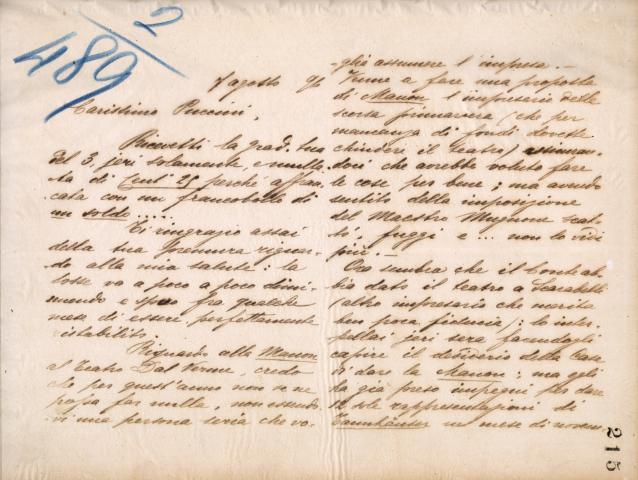 489/2
7 agosto 96
Carissimo Puccini,
Ricevetti la grad. tua
del 3, jeri solamente, e multa-
ta di Cent 25 perchè affran-
cata con un francobollo di
un soldo....
Ti ringrazio assai
della tua premura riguar-
do alla mia salute: la
tosse va a poco a poco dimi-
nuendo e spero fra qualche
mese di essere perfettamente
ristabilito.
Riguardo alla Manon
al Teatro Dal Verme, credo
che per quest'anno non se ne
possa far nulla, non essendo-
vi una persona seria che vo-
glia assumere l'impresa. —
Venne a fare una proposta
di Manon l'impresario della
scorsa primavera (che per
mancanza di fondi dovette
chiudere il Teatro) assicuran-
doci che avrebbe voluto fare
le cose per bene; ma avendo
sentito della imposizione
del Maestro Mugnone scat-
tò, fuggì e ... non lo vidi
più. —
Ora sembra che il Conte ab-
bia dato il teatro a
(altro impresario che merita
ben poca fiducia); lo inter-
pellai jeri sera facendogli
capire il desiderio della Casa
di dare la Manon; ma egli
ha già preso impegni per dare
12 sole rappresentazioni di
Tannhäuser in mese di novem-
215